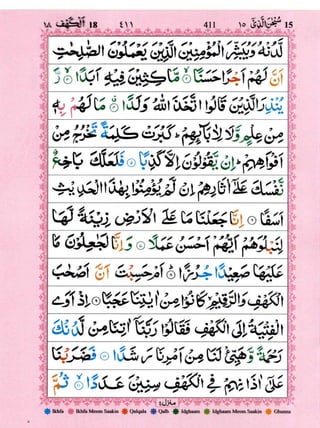 ١٨ الكهف 18 ٤١١ 411 سبحن الذي ١٥ 15
لَّدُنْهُ وَيُبَشِّرَ الْمُؤْمِنِيْنَ الَّذِيْنَ يَعْمَلُوْنَ الصّٰلِحٰتِ
اَنَّ لَهُمْ اَجْرًا حَسَنًا ۙ مَّاكِثِيْنَ فِيْهِ اَبَدًا ۙ وَّ
يُنْذِرَ الَّذِيْنَ قَالُوا اتَّخَذَ اللّٰهُ وَلَدًا ۗ مَا لَهُمْ بِهٖ
مِنْ عِلْمٍ وَّلَا لِاٰبَآئِهِمْ ؕ كَبُرَتْ كَلِمَةً تَخْرُجُ مِنْ
اَفْوَاهِهِمْ ؕ اِنْ يَّقُوْلُوْنَ اِلَّا كَذِبًا ۞ فَلَعَلَّكَ بَاخِعٌ
نَّفْسَكَ عَلٰٓى اٰثَارِهِمْ اِنْ لَّمْ يُؤْمِنُوْا بِهٰذَا الْحَدِيْثِ
اَسَفًا ۞ اِنَّا جَعَلْنَا مَا عَلَى الْاَرْضِ زِيْنَةً لَّهَا
لِنَبْلُوَهُمْ اَيُّهُمْ اَحْسَنُ عَمَلًا ۞ وَاِنَّا لَجٰعِلُوْنَ مَا
عَلَيْهَا صَعِيْدًا جُرُزًا ؕ اَمْ حَسِبْتَ اَنَّ اَصْحٰبَ
الْكَهْفِ وَالرَّقِيْمِ كَانُوْا مِنْ اٰيٰتِنَا عَجَبًا ۞ اِذْ اَوَى
الْفِتْيَةُ اِلَى الْكَهْفِ فَقَالُوْا رَبَّنَآ اٰتِنَا مِنْ لَّدُنْكَ
رَحْمَةً وَّهَيِّئْ لَنَا مِنْ اَمْرِنَا رَشَدًا ۞ فَضَرَبْنَا
عَلٰٓى اٰذَانِهِمْ فِى الْكَهْفِ سِنِيْنَ عَدَدًا ۙ ثُمَّ
منزل٤
Ikhfa Ikhfa Meem Saakin Qalqala Qalb Idghaam Idghaam Meem Saakin Ghunna